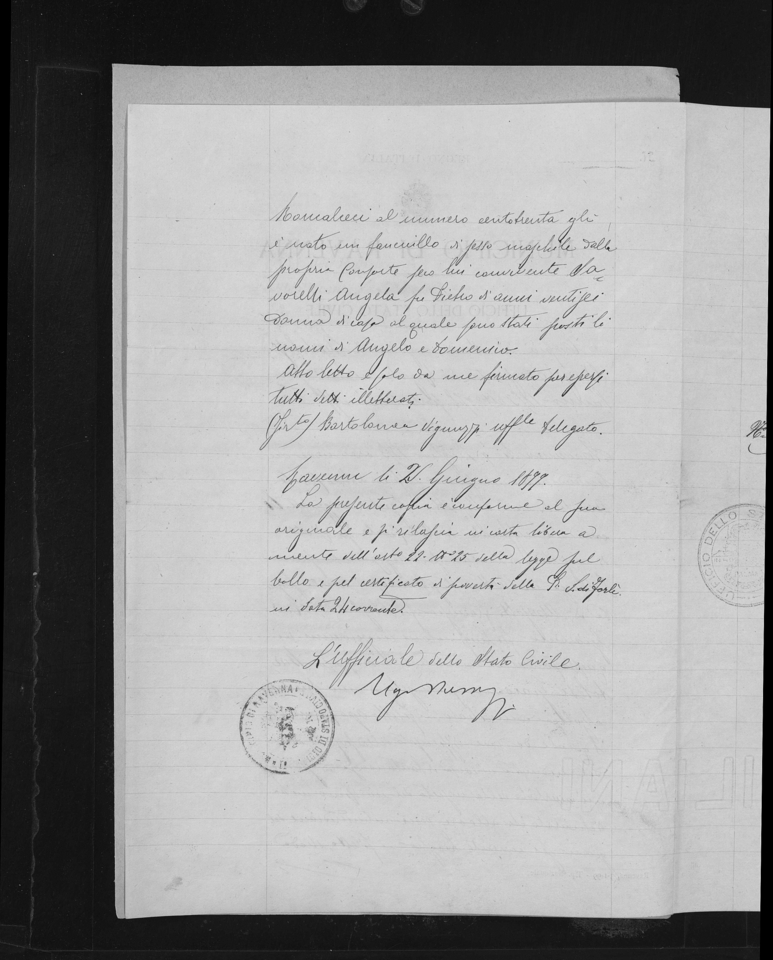 al numero centotrenta gli
è nato un fanciullo di sesso maschile dalla
propria Consorte seco lui convivente Sa=
vorelli Angela fu Pietro di anni ventisei
Donna di casa al quale sono stati posti li
nomi di Angelo e Domenico.
Atto letto e solo da me firmato per essersi
tutti detti illetterati.
(Firto) Bartolomeo uffle delegato.
Ravenna li Giugno 1899.
La presente copia è conforme al suo
originale e si rilascia in carta libera a
mente dell'arto 22. No 25 della legge sul
bollo e pel certificato di povertà della P. S. di Forlì
in data 24 corrente.
L'Ufficiale dello Stato Civile
UFFICIO DELLO S